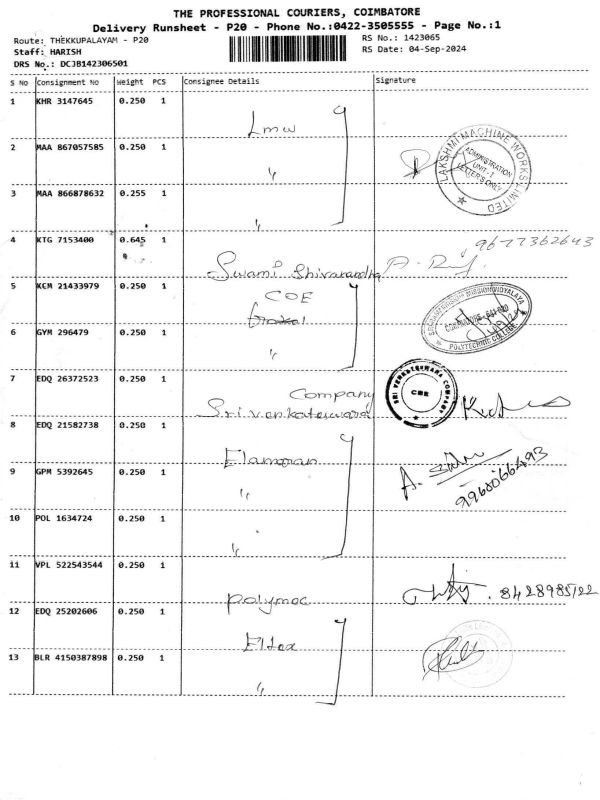 THE PROFESSIONAL COURIERS, COIMBATORE
Delivery Runsheet - P20 - Phone No.:0422-3505555 - Page No.:1
Route: THEKKUPALAYAM - P20
RS No.: 1423065
Staff: HARISH
RS Date: 04-Sep-2024
DRS No.: DCJB142306501
S No Consignment No Weight PCS Consignee Details Signature
1 KHR 3147645 0.250 1 Lmw
2 MAA 867057585 0.250 1 "
LAKSHMI MACHINE WORKS LIMITED
ADMINISTRATION
UNIT-1
LETTERS ONLY
3 MAA 866878632 0.255 1 "
4 KTG 7153400 0.645 1 Swami Shivananda
9677362643
5 KCM 21433979 0.250 1 COE
6 GYM 296479 0.250 1 "
POLYTECHNIC COLLEGE
7 EDQ 26372523 0.250 1 Company
Sri Venkateswara
SRI VENKATESWARA COMPANY
CBE
8 EDQ 21582738 0.250 1 Elamaran
9 GPM 5392645 0.250 1 "
9960066493
10 POL 1634724 0.250 1 "
11 VPL 522543544 0.250 1 Polymac
8428985122
12 EDQ 25202606 0.250 1 Eltex
13 BLR 4150387898 0.250 1 "